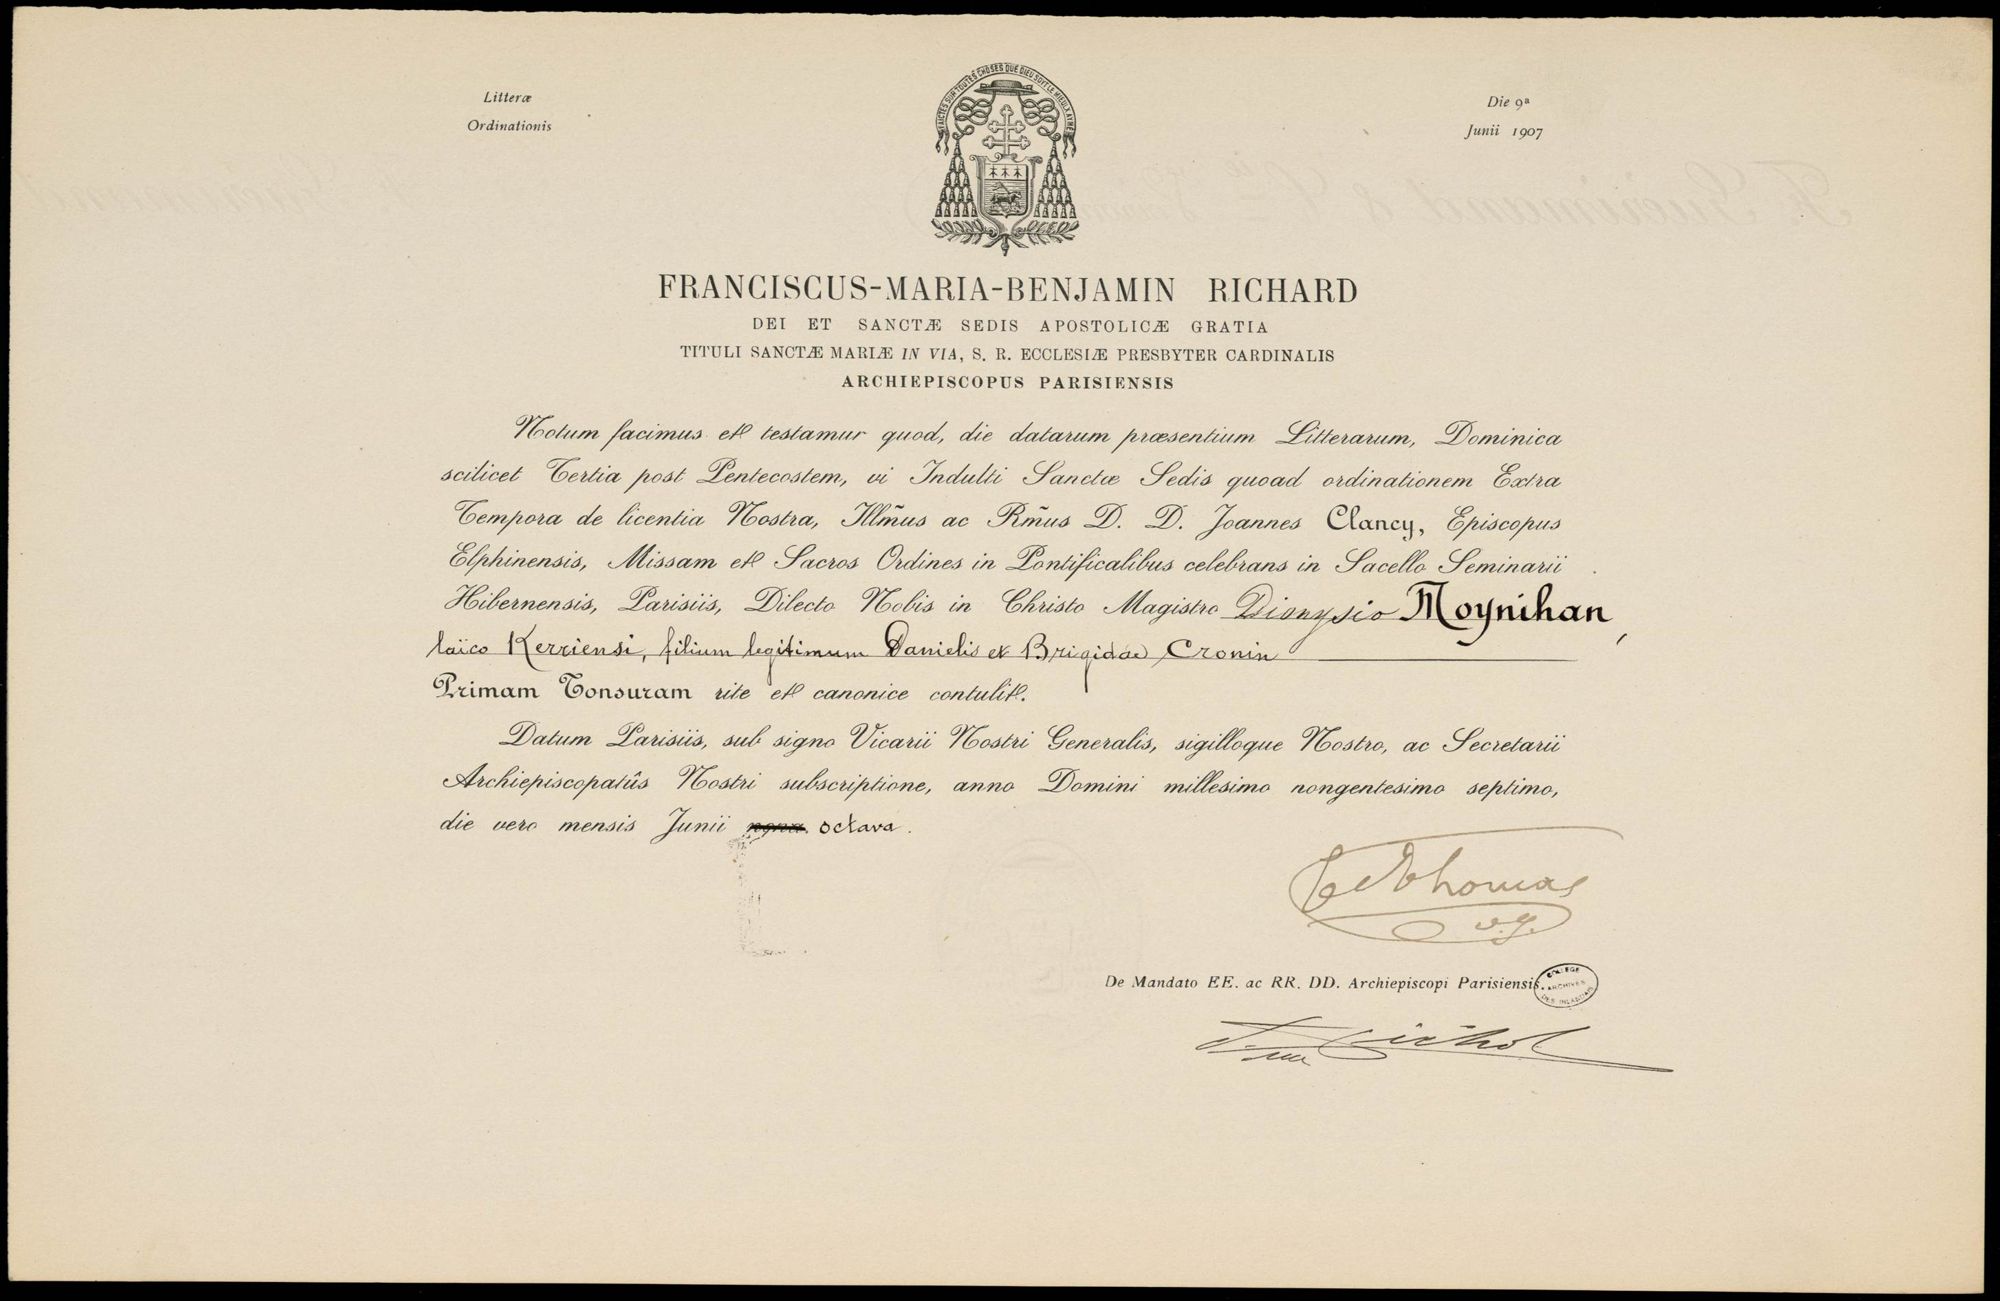 Litteræ
Ordinationis
Die 9ª
Junii 1907
FAICTES SUR TOUTES CHOSES QUE DIEU SOIT LE MIEULX AYMÉ
FRANCISCUS-MARIA-BENJAMIN RICHARD
DEI ET SANCTÆ SEDIS APOSTOLICÆ GRATIA
TITULI SANCTÆ MARIÆ IN VIA, S. R. ECCLESIÆ PRESBYTER CARDINALIS
ARCHIEPISCOPUS PARISIENSIS
Notum facimus et testamur quod, die datarum præsentium Litterarum, Dominica
scilicet Tertia post Pentecostem, vi Indulti Sanctæ Sedis quoad ordinationem Extra
Tempora de licentia Nostra, Illm̃us ac Rm̃us D. D. Joannes Clancy, Episcopus
Elphinensis, Missam et Sacros Ordines in Pontificalibus celebrans in Sacello Seminarii
Hibernensis, Parisiis, Dilecto Nobis in Christo Magistro Dionysio Moynihan,
laïco Kerriensi, filium legitimum Danielis et Brigidae Cronin
Primam Tonsuram rite et canonice contulit.
Datum Parisiis, sub signo Vicarii Nostri Generalis, sigilloque Nostro, ac Secretarii
Archiepiscopatûs Nostri subscriptione, anno Domini millesimo nongentesimo septimo,
die vero mensis Junii nona octava.
Thomas
v.g.
De Mandato EE. ac RR. DD. Archiepiscopi Parisiensis.
COLLEGE
ARCHIVES
DES IRLANDAIS